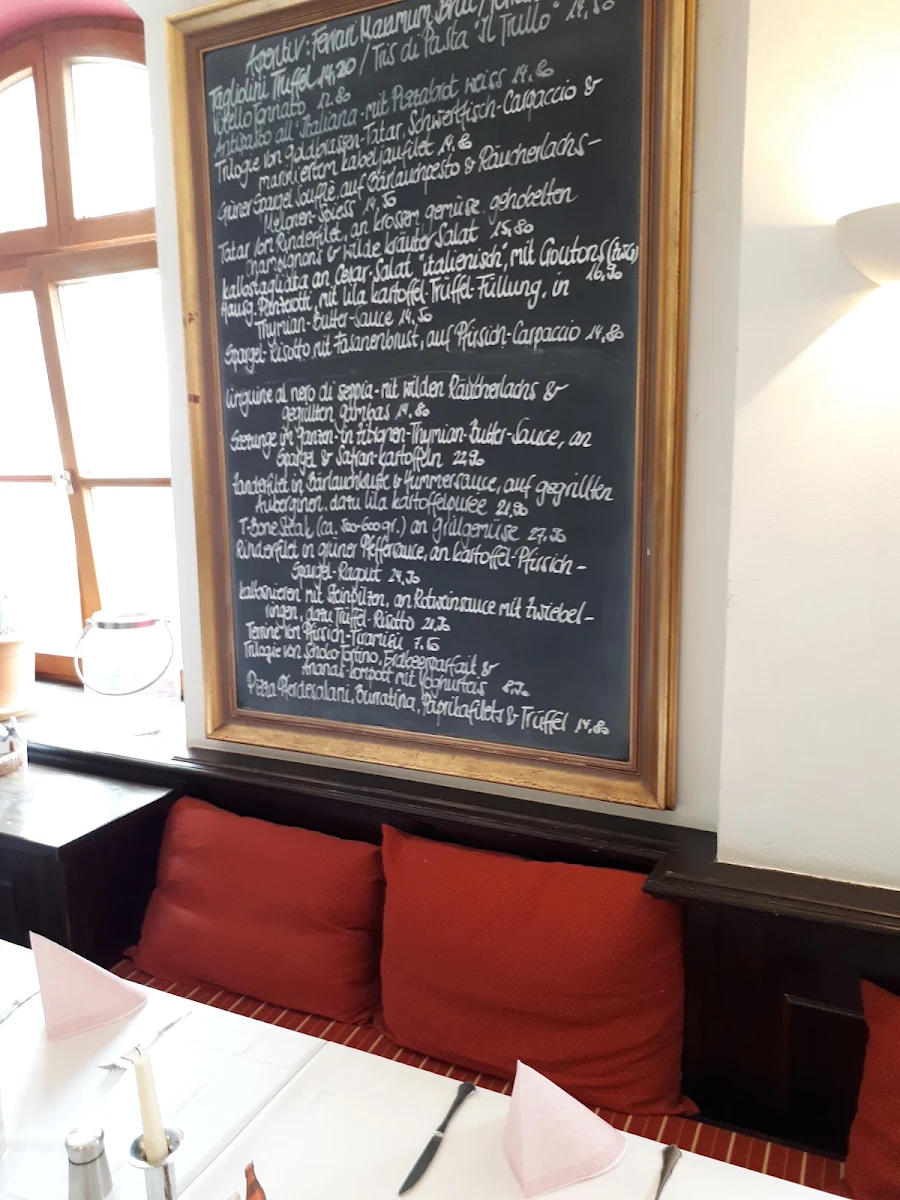 Aperitiv: Ferrari Maximum Brut
Tagliolini Trüffel 14,20 / Tris di Pasta "Il Trullo" 14,50
Vitello Tonnato 12.80
Antipasto all'Italiana - mit Pizzabrot weiss 14.80
Trilogie von Goldbrassen-Tatar, Schwertfisch-Carpaccio &
mariniertem Kabeljaufilet 14.80
Grüner Spargel Soufflé auf Bärlauchpesto & Räucherlachs-
Melonen-Spiess 14.50
Tatar von Rinderfilet, an krossem gemüse gehobelten
Champignons & wilde kräuter Salat 15,80
Kalbstagliata an Cesar-Salat "italienisch", mit Croutons
16,90
Hausg. Panzerotti mit lila kartoffel-Trüffel-Füllung, in
Thymian-Butter-Sauce 14.50
Spargel-Risotto mit Fasanenbrust, auf Pfirsich-Carpaccio 14,80
Linguine al nero di seppia - mit wilden Räucherlachs &
gegrillten gambas 14.80
Seezunge im ganzen - in Zitronen-Thymian-Butter-Sauce, an
Spargel & Safran-kartoffeln 22.90
Zanderfilet in Bärlauchkruste & Hummersauce, auf gegrillten
Auberginen, dazu lila kartoffelpurée 21,90
T-Bone Steak (ca. 500-600 gr.) an grillgemüse 27,50
Rinderfilet in grüner Pfeffersauce, an kartoffel-Pfirsich-
Spargel-Ragout 24.50
kalbsnieren mit Steinpilzen, an Rotweinsauce mit zwiebel-
ringen, dazu Trüffel-Risotto 21,50
Terrine von Pfirsich-Tiramisu 7.50
Trilogie von Schoko-Tortino, Erdbeerparfait &
Ananas-kompott mit Yoghurteis 8,50
Pizza Pferdesalami, Burratina, Paprikafilets & Trüffel 14,80